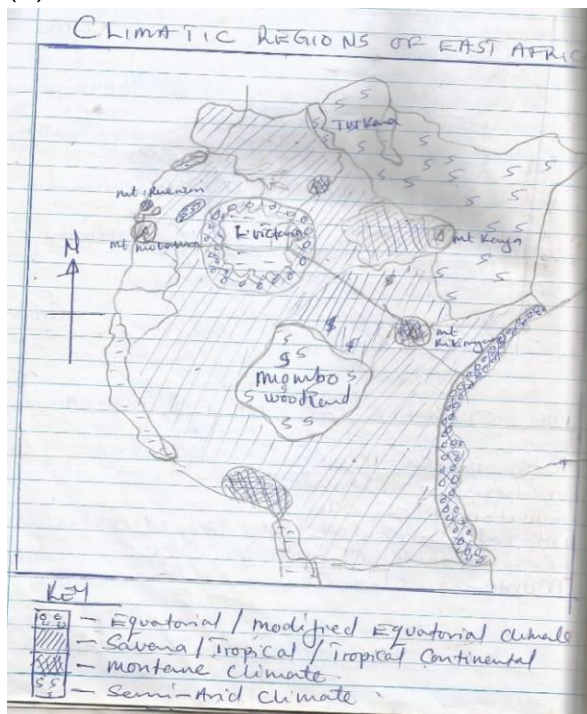 CLIMATIC REGIONS OF EAST AFRIC
Turkana
mt Ruenzori
L. victoria
mt Kenya
N
mt
miombo
woodland
Key
- Equatorial / modified Equatorial climate
- Savana / Tropical / Tropical Continental
- montane climate.
- Semi-Arid climate.